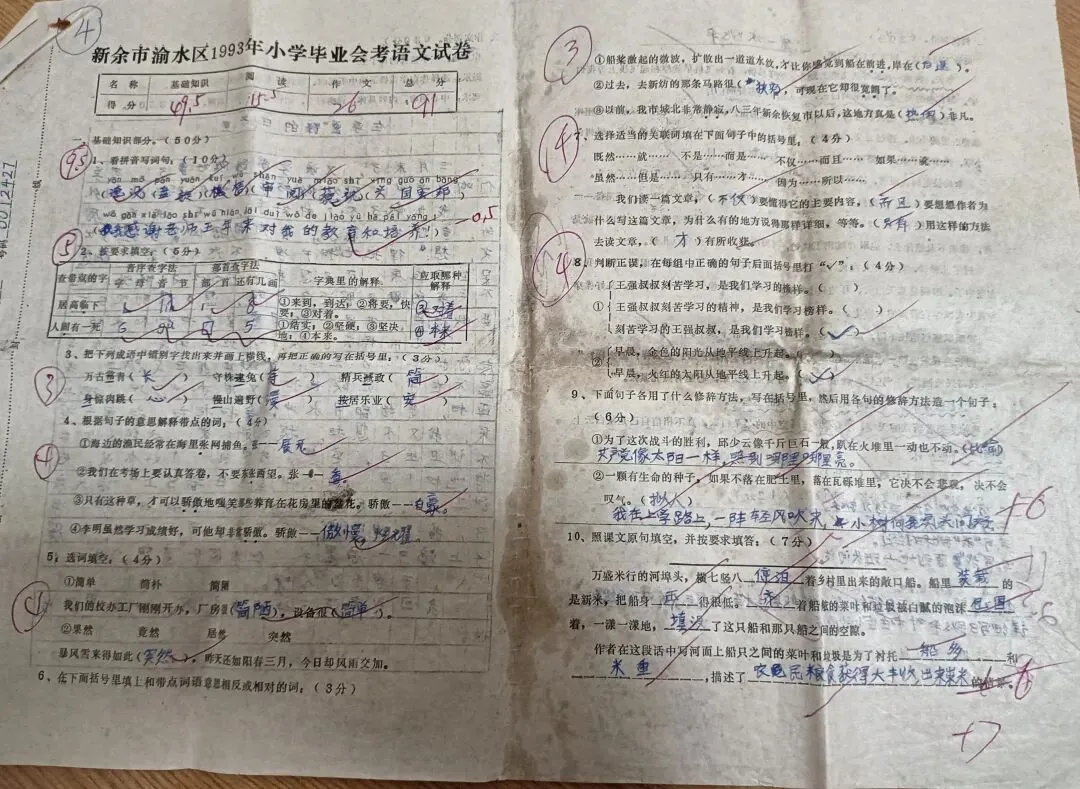 ④
新余市渝水区1993年小学毕业会考语文试卷
名称 基础知识 阅读 作文 总分
得分 49.5 15.5 26 91
一、基础知识部分。(50分)
9.5
1、看拼音写词句:(10分)
(审阅)
wǒ gǎn xiè lǎo shī wǔ nián lái duì wǒ de jiào yù hé péi yǎng
(我感谢老师五年来对我的教育和培养!) -0.5
⑤
2、按要求填空:(5分)
查带点的字 音序查字法 部首查字法 字典里的解释 应取哪种解释
字母 音节 部首 还有几画
居高临下 ①来到,到达;②将要,快要;③对着。 ③对着
人固有一死 G gu 囗 5 ①结实;②坚硬;③坚决地;④本来。 ④本来
3、把下列成语中错别字找出来并画上横线,再把正确的写在括号里:(3分)
③
万古普青(长) 守株逮兔(待) 精兵拣政(简)
身惊肉跳(心) 慢山遍野(漫) 按居乐业(安)
4、根据句子的意思解释带点的词:(4分)
①海边的渔民经常在海里张网捕鱼。张——展开
②我们在考场上要认真答卷,不要东张西望。张——看
③只有这种草,才可以骄傲地嗤笑那些养育在花房里的盆花。骄傲——自豪
④李明虽然学习成绩好,可他却非常骄傲。骄傲——傲慢
5、选词填空:(4分)
①简单 简朴 简陋
我们的校办工厂刚刚开办,厂房很(简陋),设备很(简单)。
②果然 竟然 居然 突然
暴风雪来得如此(突然),昨天还如阳春三月,今日却风雨交加。
6、在下面括号里填上和带点词语意思相反或相对的词:(3分)
③
①船桨激起的微波,扩散出一道道水纹,才让你感觉到船在前进,岸在(后退)。
②过去,去新纺的那条马路很(狭窄),可现在它却很宽阔了。
③以前,我市城北非常静寂,八三年新余恢复市以后,这地方真是(热闹)非凡。
④
7、选择适当的关联词填在下面句子中的括号里:(4分)
既然……就…… 不是……而是…… 不仅……而且…… 如果……就……
虽然……但是…… 只有……才…… 因为……所以……
我们读一篇文章,(不仅)要懂得它的主要内容,(而且)要想想作者为
什么写这篇文章,为什么有的地方说得那样详细,等等。(只有)用这样的方法
去读文章,(才)有所收获。
④
8、判断正误,在每组中正确的句子后面括号里打“✓”:(4分)
① 王强叔叔刻苦学习,是我们学习的榜样。( )
王强叔叔刻苦学习的精神,是我们学习榜样。( )
刻苦学习的王强叔叔,是我们学习榜样。(✓)
② 早晨,金色的阳光从地平线上升起。( )
早晨,火红的太阳从地平线上升起。(✓)
9、下面句子各用了什么修辞方法,写在括号里,然后用各句的修辞方法造一个句子:
(6分)
①为了这次战斗的胜利,邱少云像千斤巨石一般,趴在火堆里一动也不动。(比喻)
共产党像太阳一样,照到哪里哪里亮。
②一颗有生命的种子,如果不落在肥土里,落在瓦砾堆里,它决不会悲观,决不会
叹气。(拟人)
我在上学路上,一阵轻风吹来,小树向我
+6
10、照课文原句填空,并按要求填答:(7分)
万盛米行的河埠头,横七竖八 停泊 着乡村里出来的敞口船。船里 装载 的
是新米,把船身 压 得很低。 着船舷的菜叶和垃圾被白腻的泡沫 包围
着,一漾一漾地, 填没 了这只船和那只船之间的空隙。
作者在这段话中写河面上船只之间的菜叶和垃圾是为了衬托 船多 和
米重 ,描述了 农民粮食获得大丰收,出来粜米 的情景。
+7